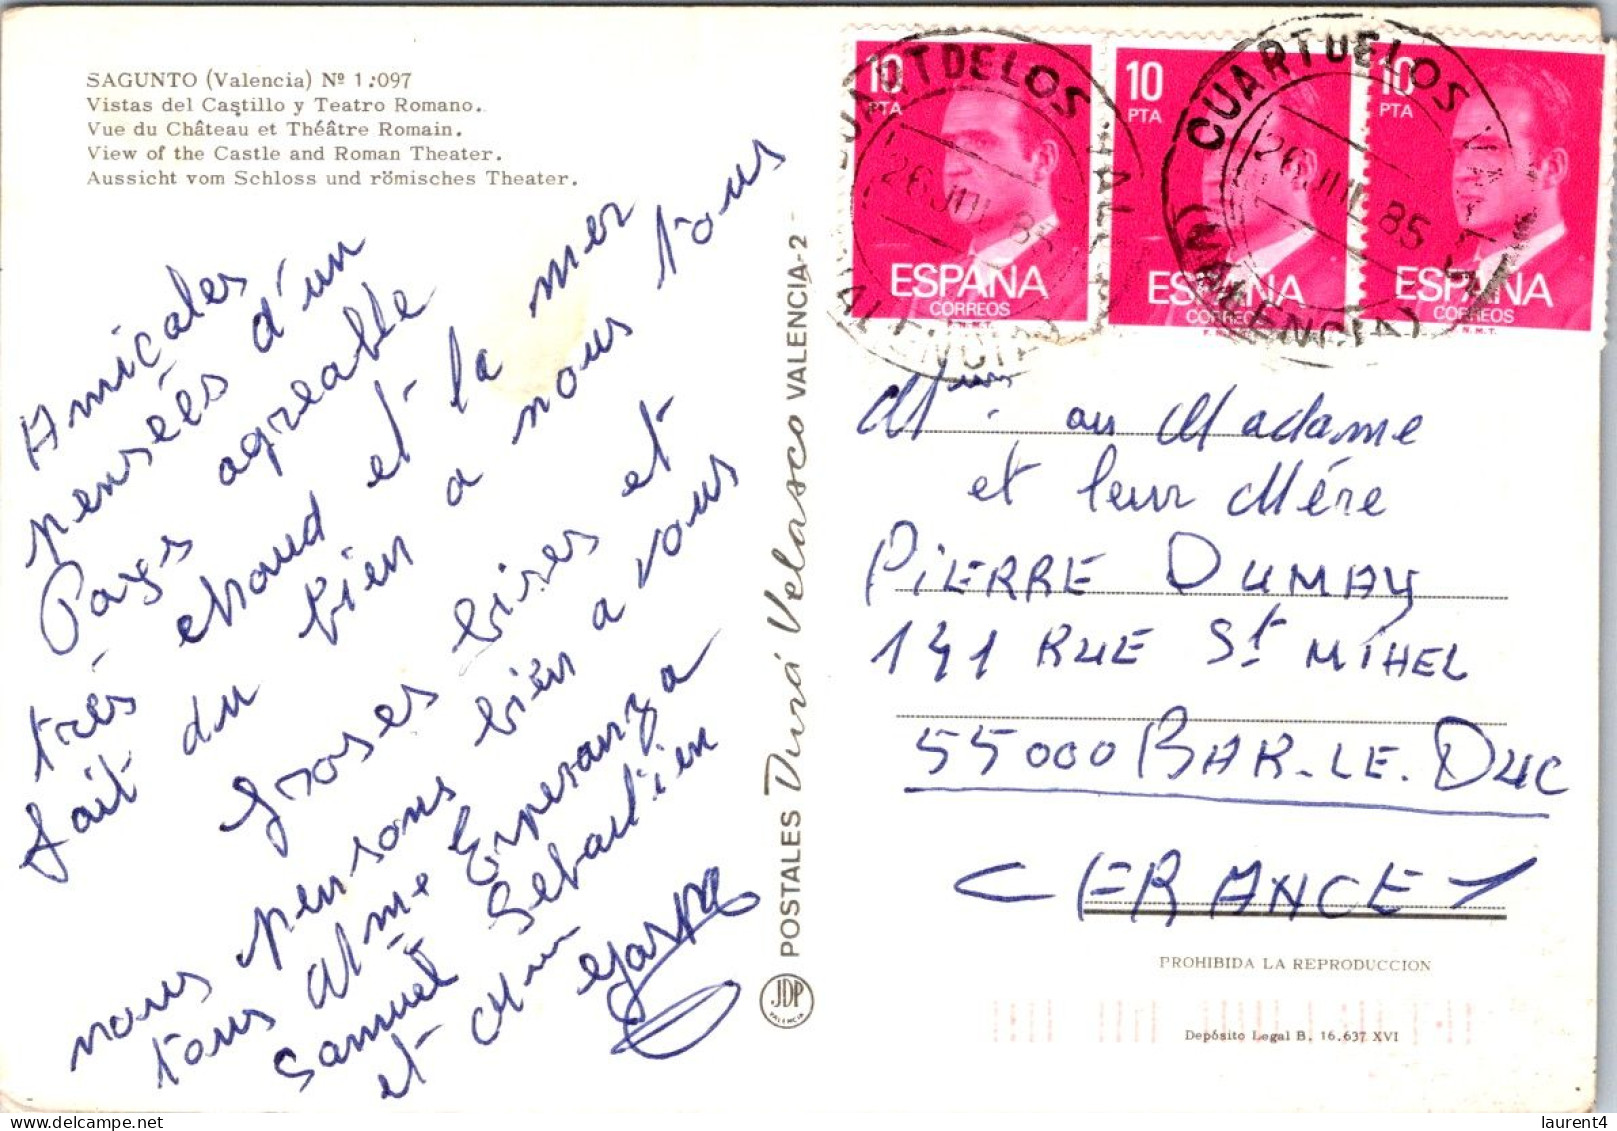 SAGUNTO (Valencia) Nº 1.:097
Vistas del Castillo y Teatro Romano.
Vue du Château et Théâtre Romain.
View of the Castle and Roman Theater.
Aussicht vom Schloss und römisches Theater.
Amicales
pensées d'un
Pays agreable
très chaud et la mer
fait du bien a nous tous
Groses bises et
nous pensons bien a vous
tous Mme Esperanza
Samuel Sebastien
et Mr Gaspar
POSTALES Durá Velasco VALENCIA-2
JDP
VALENCIA
10
PTA
ESPAÑA
CORREOS
10
PTA
ESPAÑA
CORREOS
10
PTA
ESPAÑA
CORREOS
F.N.M.T.
CUARTDELOS VALLS
(VALENCIA)
26 JUL 85
CUARTUELOS VALLS
(VALENCIA)
26 JUL 85
au Madame
et leur Mére
PIERRE DUMAY
141 RUE St MIHEL
55000 BAR-LE-DUC
(FRANCE)
PROHIBIDA LA REPRODUCCION
Depósito Legal B. 16.637 XVI
laurent4